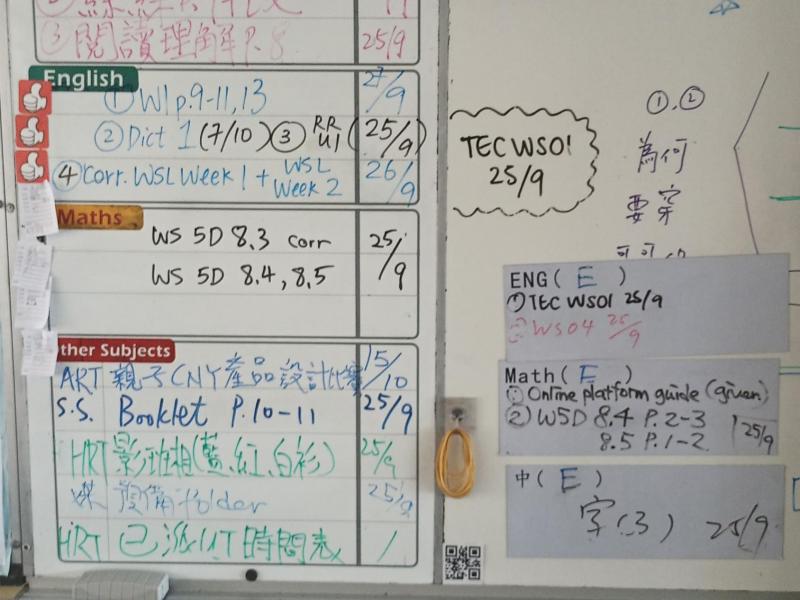 ③ 閱讀理解 P.8 25/9
English
① W1 p.9-11, 13 27/9
② Dict 1 (7/10) ③ RR U1 (25/9)
④ Corr. WSL Week 1 + WSL Week 2 26/9
Maths
WS 5D 8.3 corr 25/9
WS 5D 8.4, 8.5
Other Subjects
ART 親子CNY產品設計比賽 15/10
S.S. Booklet P.10-11 25/9
HRT 影班相(藍、紅、白衫) 25/9
folder 25/9
HRT 已派UT時間表 /
TEC WS01
25/9
①.②
為何
要穿
ENG( E )
① TEC WS01 25/9
② WS04 25/9
Math( E )
① Online platform guide (given)
② W5D 8.4 P.2-3
8.5 P.1-2 25/9
中( E )
字(3) 25/9